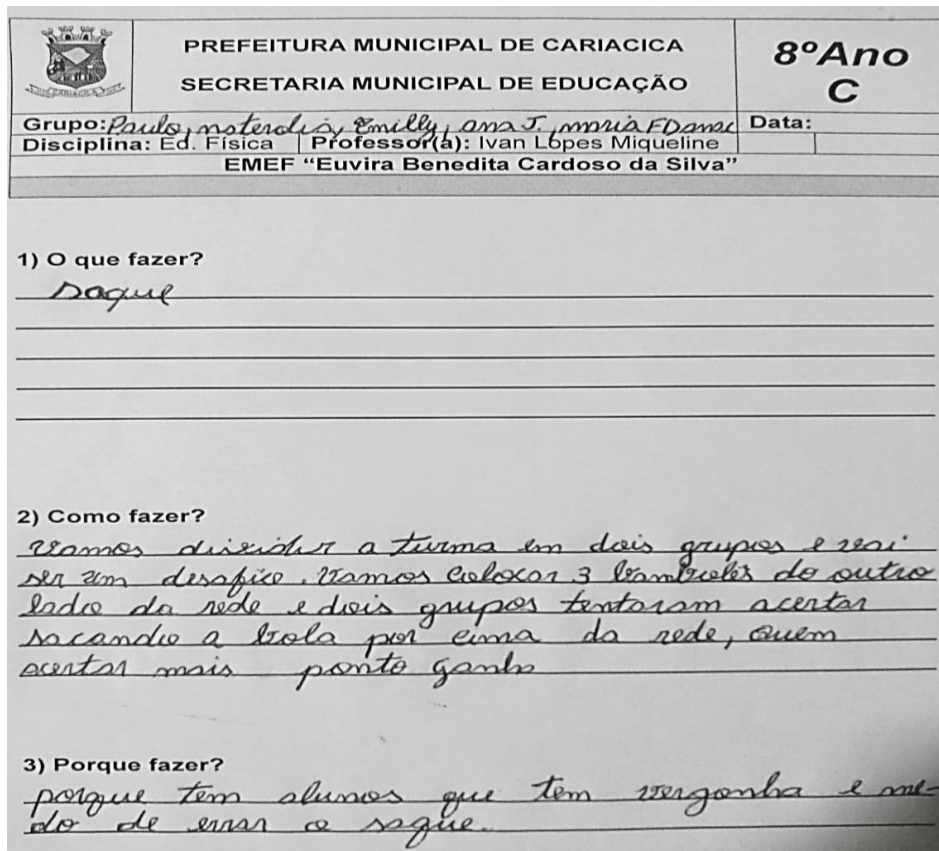 PREFEITURA MUNICIPAL DE CARIACICA
SECRETARIA MUNICIPAL DE EDUCAÇÃO
8ºAno
C
CARIACICA
Grupo: Paulo, Emilly, ana J. maria
Data:
Disciplina: Ed. Física Professor(a): Ivan Lopes Miqueline
EMEF “Euvira Benedita Cardoso da Silva”
1) O que fazer?
saque
2) Como fazer?
Vamos dividir a turma em dois grupos e vai
ser um desafio. Vamos colocar 3 bambolês do outro
lado da rede e dois grupos tentaram acertar
sacando a bola por cima da rede, quem
acertar mais ponto ganha
3) Porque fazer?
porque tem alunos que tem vergonha e me-
do de errar o saque.